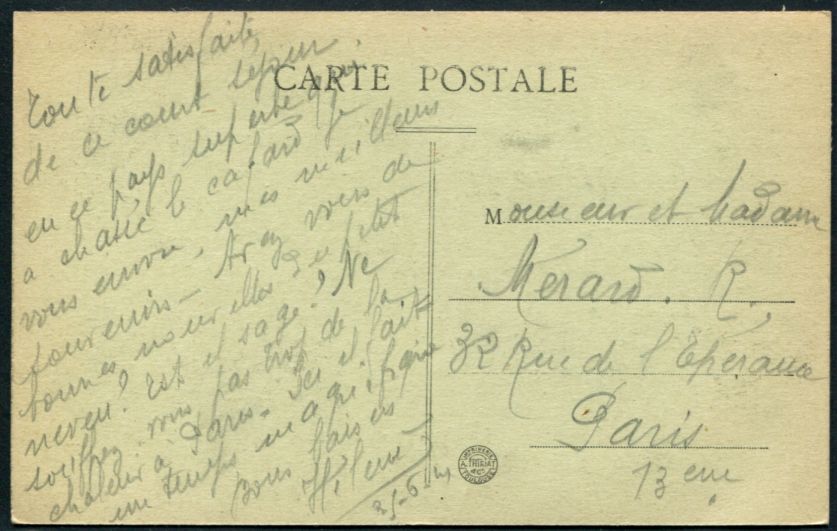 CARTE POSTALE
Toute satisfaite
de ce court séjour
en ce pays superbe qui
a chassé le cafard je
vous envoie mes meilleurs
souvenirs - Avez vous de
bonnes nouvelles du petit
neveu? Est il sage? Ne
souffrez vous pas trop de la
chaleur à Paris - Ici il fait
un temps magnifique
Bons baisers
Hélène
25-6-
Monsieur et Madame
Mérard. R.
32 Rue de l'Espérance
Paris
13 eme
IMPRIMERIE
THIRIAT
& Cie
TOULOUSE